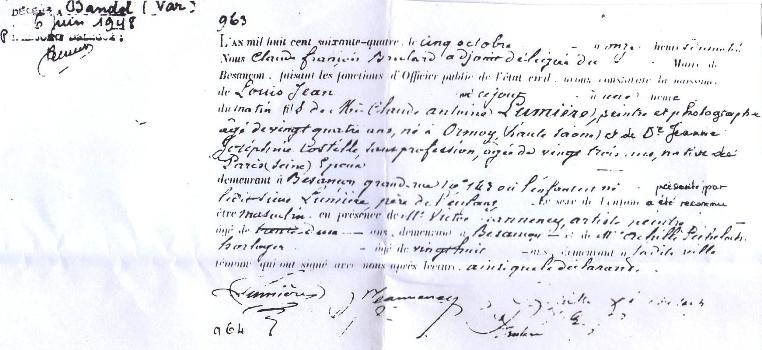 DÉCÉDÉ A Bandol (Var)
6 juin 1948
963
L'an mil huit cent soixante-quatre, le cinq octobre à onze heures
Nous Claude François Brulard adjoint délégué du Maire de
Besançon, faisant les fonctions d'Officier public de l'état civil, avons constaté la naissance
de Louis Jean né ce jour à une heure
du matin fils de Mr Claude Antoine Lumière, peintre et photographe
âgé de vingt quatre ans, né à Ormoy (haute Saône) et de De Jeanne
Joséphine Costille sans profession, âgée de vingt trois ans, native de
Paris (Seine) Epoux
demeurant à Besançon grande rue No 143 où l'enfant est né présenté par
ledit sieur Lumière père de l'enfant Le sexe de l'enfant a été reconnu
être masculin, en présence de Mr Victor Jeanneney, artiste peintre
âgé de trente deux ans, demeurant à Besançon et de Mr Achille
horloger âgé de vingt huit ans, demeurant à ladite ville
témoins qui ont signé avec nous après lecture, ainsi que le déclarant.
Lumière Jeanneney
964